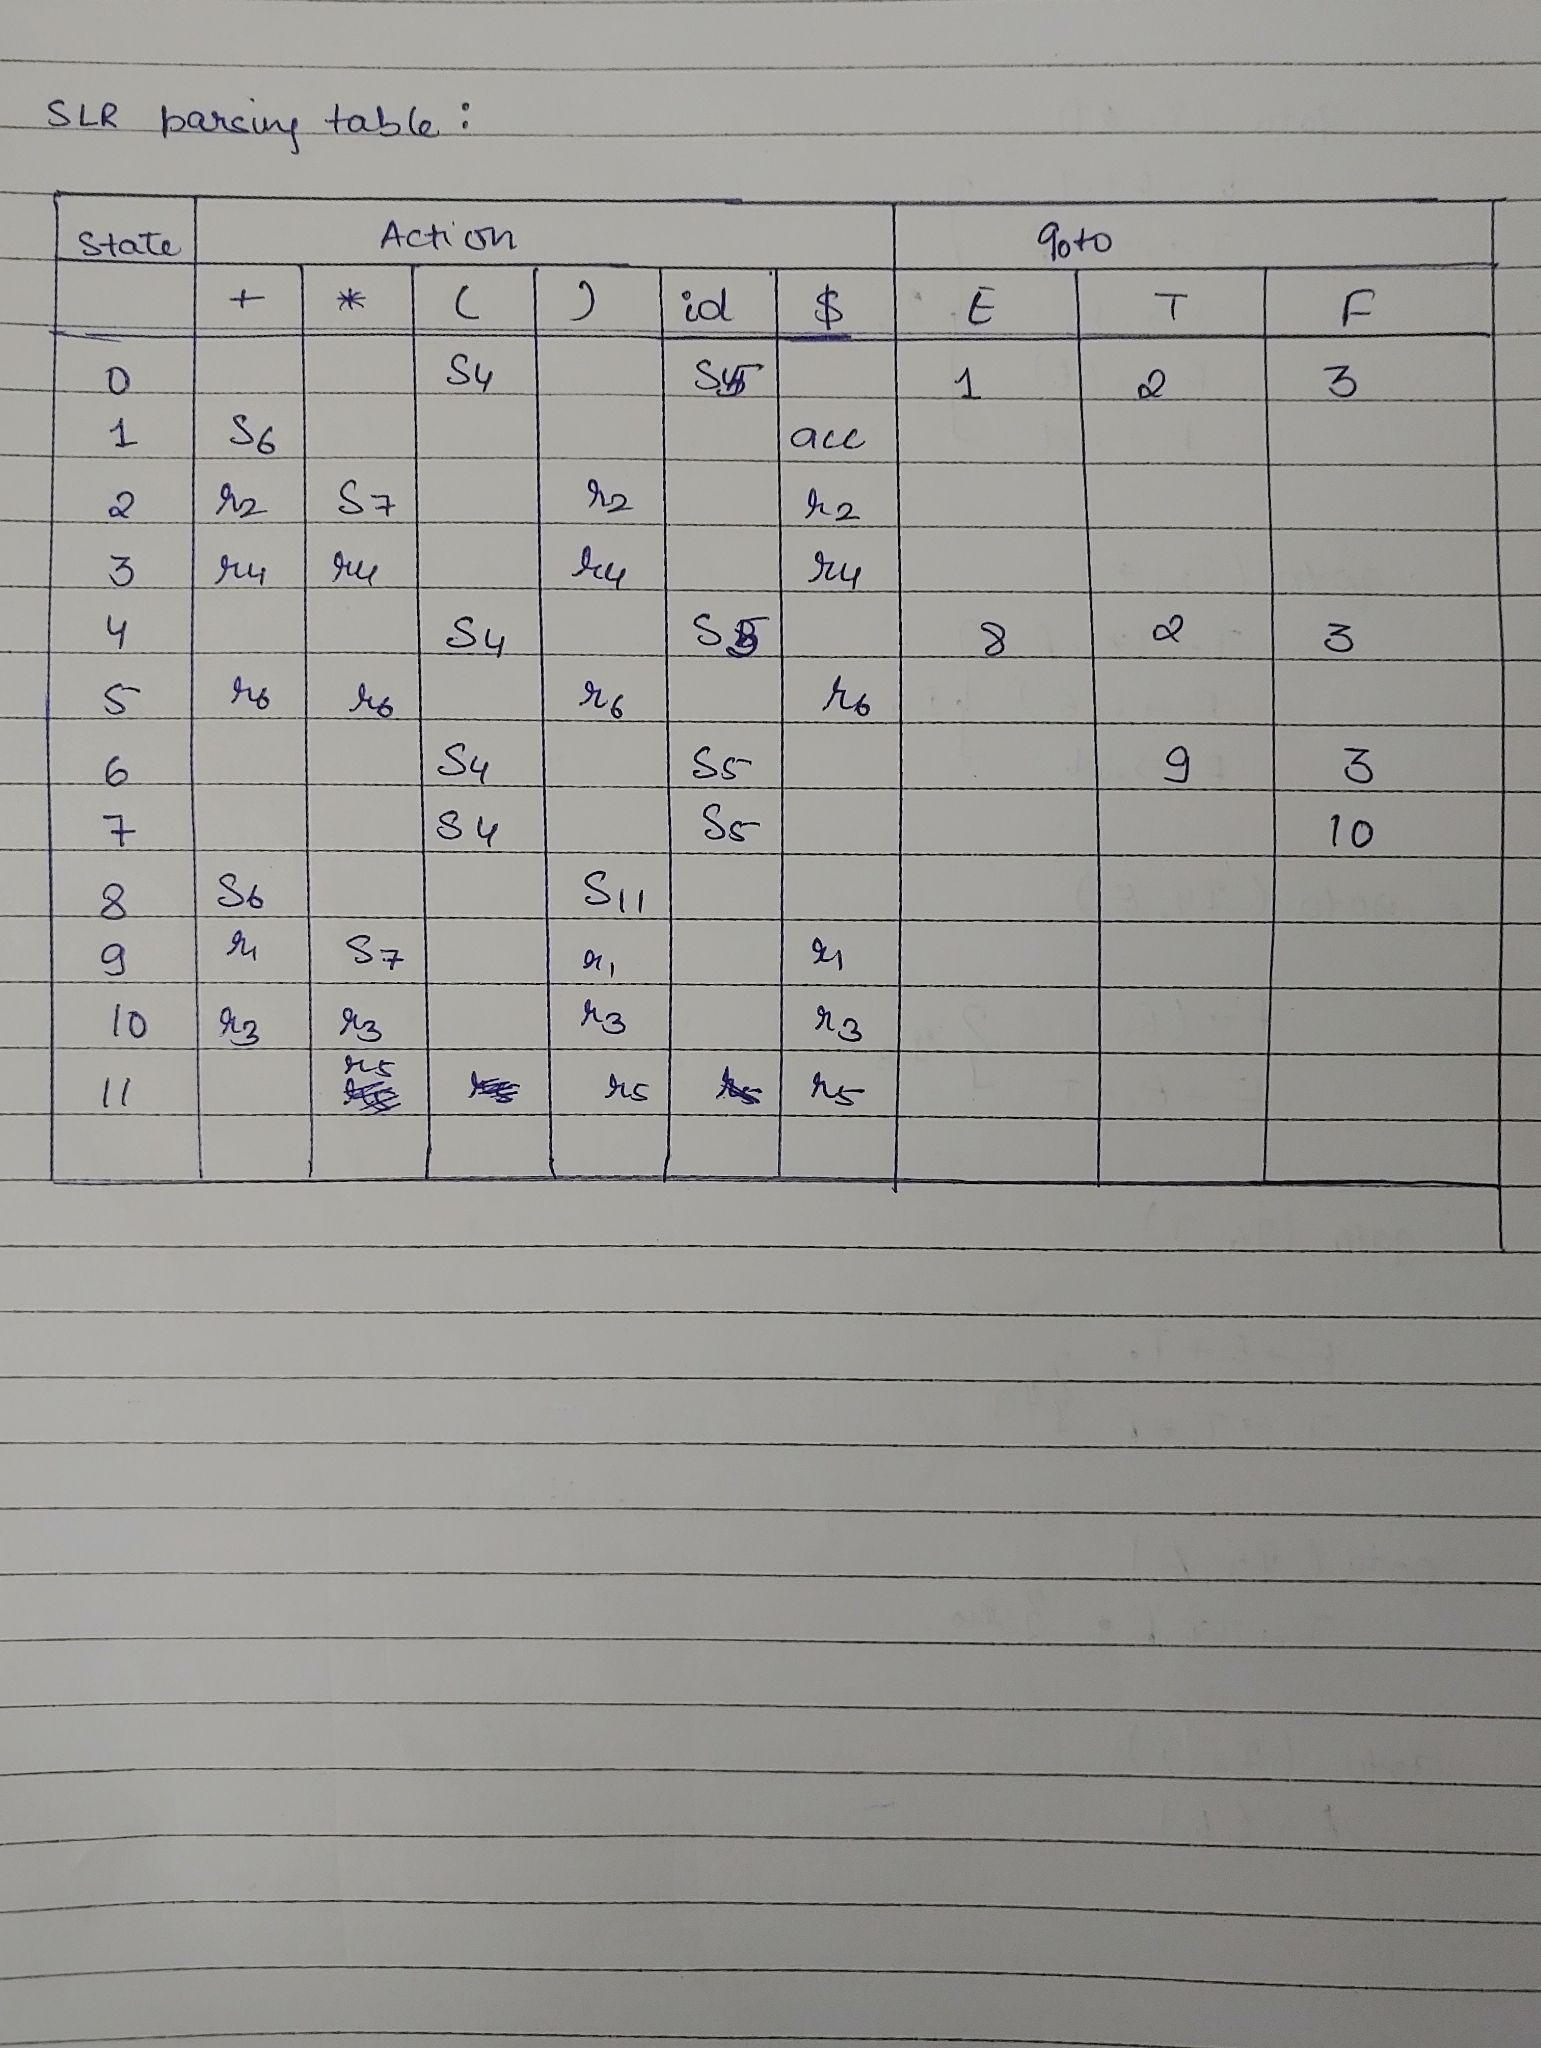 SLR parsing table :
State Action goto
+ * ( ) id $ E T F
0 S4 S5 1 2 3
1 S6 acc
2 r2 S7 r2 r2
3 r4 r4 r4 r4
4 S4 S5 8 2 3
5 r6 r6 r6 r6
6 S4 S5 9 3
7 S4 S5 10
8 S6 S11
9 r1 S7 r1 r1
10 r3 r3 r3 r3
11 r5 r5 r5